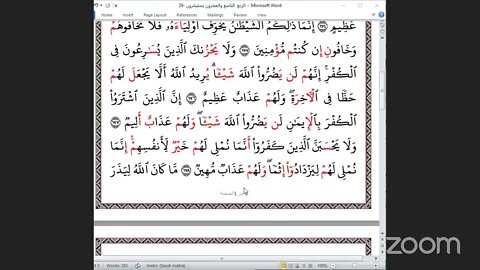 الربع التاسع والعشرون يستبشرون -29 - Microsoft Word
References Mailings Review View Acrobat
عَظِيمٍ ۝ إِنَّمَا ذَٰلِكُمُ ٱلشَّيْطَٰنُ يُخَوِّفُ أَوْلِيَآءَهُۥ فَلَا تَخَافُوهُمْ
وَخَافُونِ إِن كُنتُم مُّؤْمِنِينَ ۝ وَلَا يَحْزُنكَ ٱلَّذِينَ يُسَٰرِعُونَ فِى
ٱلْكُفْرِ ۚ إِنَّهُمْ لَن يَضُرُّوا۟ ٱللَّهَ شَيْـًٔا ۗ يُرِيدُ ٱللَّهُ أَلَّا يَجْعَلَ لَهُمْ
حَظًّا فِى ٱلْـَٔاخِرَةِ ۖ وَلَهُمْ عَذَابٌ عَظِيمٌ ۝ إِنَّ ٱلَّذِينَ ٱشْتَرَوُا۟
ٱلْكُفْرَ بِٱلْإِيمَٰنِ لَن يَضُرُّوا۟ ٱللَّهَ شَيْـًٔا ۖ وَلَهُمْ عَذَابٌ أَلِيمٌ ۝
وَلَا يَحْسَبَنَّ ٱلَّذِينَ كَفَرُوٓا۟ أَنَّمَا نُمْلِى لَهُمْ خَيْرٌ لِّأَنفُسِهِمْ ۚ إِنَّمَا
نُمْلِى لَهُمْ لِيَزْدَادُوٓا۟ إِثْمًا ۖ وَلَهُمْ عَذَابٌ مُّهِينٌ ۝ مَّا كَانَ ٱللَّهُ لِيَذَرَ
zoom
Words: 293 Arabic (Saudi Arabia) 100%